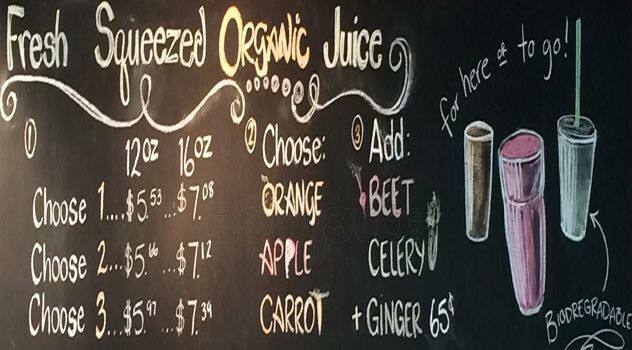 Fresh Squeezed ORGANIC Juice
for here or to go!
①
12oz 16oz
Choose 1....$5.53...$7.08
Choose 2...$5.66...$7.12
Choose 3...$5.97...$7.39
② Choose:
ORANGE
APPLE
CARROT
③ Add:
BEET
CELERY
+ GINGER 65¢
BIODREGRADABLE